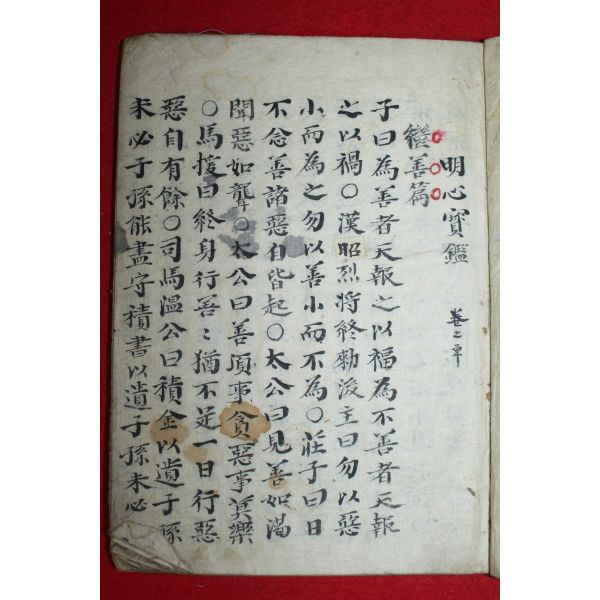 明心寶鑑 卷之單
繼善篇
子曰為善者天報之以福為不善者天報
之以禍〇漢昭烈將終勅後主曰勿以惡
小而為之勿以善小而不為〇莊子曰日
不念善諸惡自皆起〇太公曰見善如渴
聞惡如聾〇太公曰善須事貪惡事莫樂
〇馬援曰終身行善〻猶不足一日行惡
惡自有餘〇司馬溫公曰積金以遺子孫
未必子孫能盡守積書以遺子孫未必